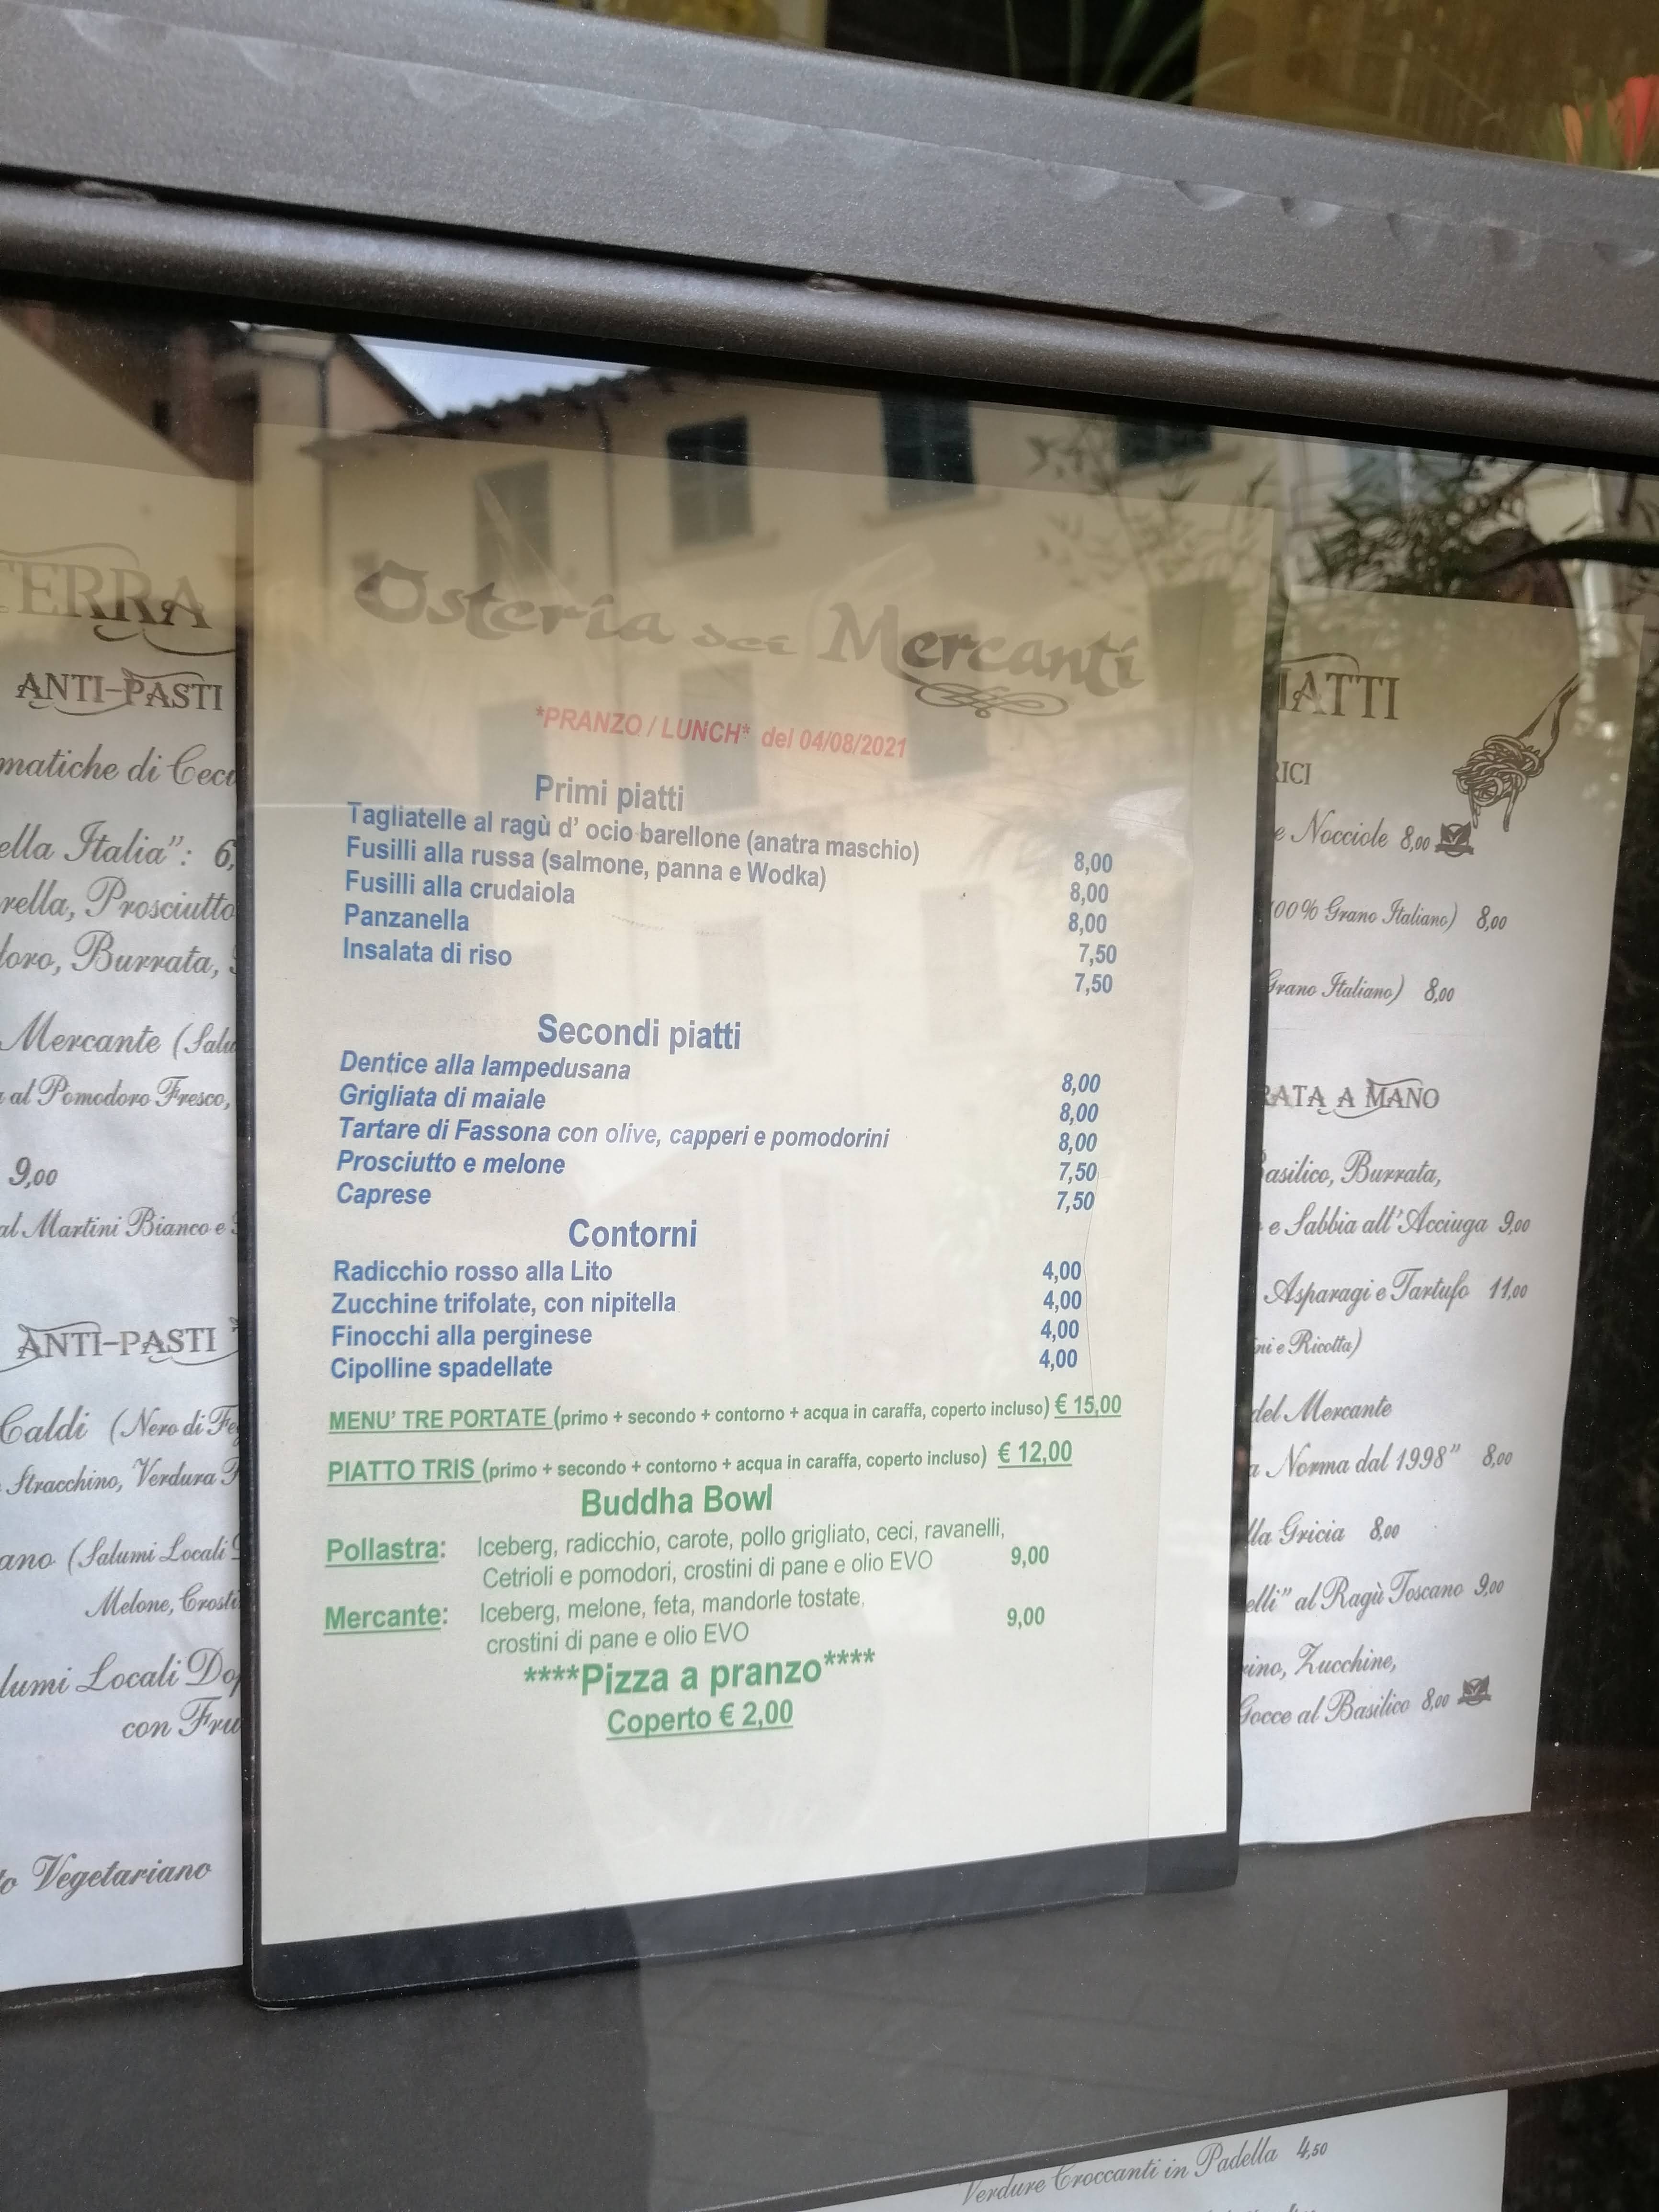 Osteria dei Mercanti
*PRANZO / LUNCH* del 04/08/2021
Primi piatti
Tagliatelle al ragù d' ocio barellone (anatra maschio) 8,00
Fusilli alla russa (salmone, panna e Wodka) 8,00
Fusilli alla crudaiola 8,00
Panzanella 7,50
Insalata di riso 7,50
Secondi piatti
Dentice alla lampedusana 8,00
Grigliata di maiale 8,00
Tartare di Fassona con olive, capperi e pomodorini 8,00
Prosciutto e melone 7,50
Caprese 7,50
Contorni
Radicchio rosso alla Lito 4,00
Zucchine trifolate, con nipitella 4,00
Finocchi alla perginese 4,00
Cipolline spadellate 4,00
MENU' TRE PORTATE (primo + secondo + contorno + acqua in caraffa, coperto incluso) € 15,00
PIATTO TRIS (primo + secondo + contorno + acqua in caraffa, coperto incluso) € 12,00
Buddha Bowl
Pollastra: Iceberg, radicchio, carote, pollo grigliato, ceci, ravanelli,
Cetrioli e pomodori, crostini di pane e olio EVO 9,00
Mercante: Iceberg, melone, feta, mandorle tostate,
crostini di pane e olio EVO 9,00
****Pizza a pranzo****
Coperto € 2,00
TERRA
ANTI-PASTI
matiche di Ceci
ella Italia": 6,
rella, Prosciutto
doro, Burrata,
Mercante (Salu
al Pomodoro Fresco,
9,00
al Martini Bianco e
ANTI-PASTI
Caldi (Nero di Fe
Stracchino, Verdura
ano (Salumi Locali
Melone, Crosti
lumi Locali Dop
con Fru
to Vegetariano
IATTI
RICI
e Nocciole 8,00
100% Grano Italiano) 8,00
Grano Italiano) 8,00
RATA A MANO
Basilico, Burrata,
e Sabbia all'Acciuga 9,00
Asparagi e Tartufo 11,00
ni e Ricotta)
del Mercante
a Norma dal 1998" 8,00
lla Gricia 8,00
elli" al Ragù Toscano 9,00
rino, Zucchine,
Gocce al Basilico 8,00
Verdure Croccanti in Padella 4,50